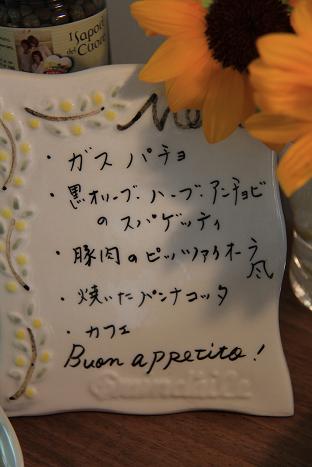 I Sapori
del Cuore
Me
・ガスパチョ
・黒オリーブ・ハーブ・アンチョビ
のスパゲッティ
・豚肉のピッツァイオーラ
風
・焼いたパンナコッタ
・カフェ
Buon appetito!